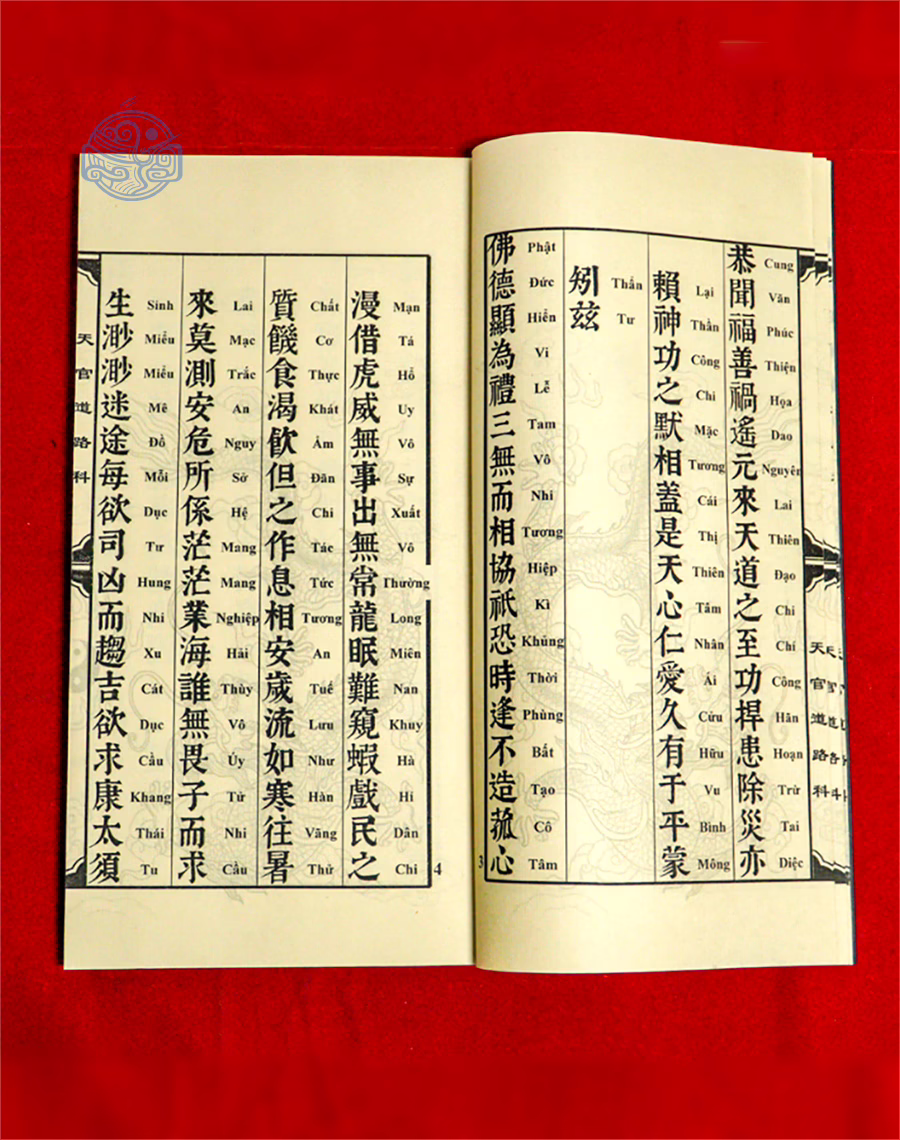 天官道路科
恭聞福善禍遙元來天道之至功捍患除災亦
Cung Văn Phúc Thiện Họa Dao Nguyên Lai Thiên Đạo Chi Chí Công Hãn Hoạn Trừ Tai Diệc
賴神功之默相蓋是天心仁愛久有于平蒙
Lại Thần Công Chi Mặc Tương Cái Thị Thiên Tâm Nhân Ái Cửu Hữu Vu Bình Mông
矧茲
Thẩn Tư
佛德顯為禮三無而相協祇恐時逢不造菰心
Phật Đức Hiển Vi Lễ Tam Vô Nhi Tương Hiệp Kì Khủng Thời Phùng Bất Tạo Cô Tâm
3
4
漫借虎威無事出無常龍眠難窺蝦戲民之
Mạn Tá Hổ Uy Vô Sự Xuất Vô Thường Long Miên Nan Khuy Hà Hí Dân Chi
質饑食渴飲但之作息相安歲流如寒往暑
Chất Cơ Thực Khát Ẩm Đãn Chi Tác Tức Tương An Tuế Lưu Như Hàn Vãng Thử
來莫測安危所係茫茫業海誰無畏子而求
Lai Mạc Trắc An Nguy Sở Hệ Mang Mang Nghiệp Hải Thùy Vô Úy Tử Nhi Cầu
生渺渺迷途每欲司凶而趨吉欲求康太須
Sinh Miểu Miểu Mê Đồ Mỗi Dục Tư Hung Nhi Xu Cát Dục Cầu Khang Thái Tu
天官道路科